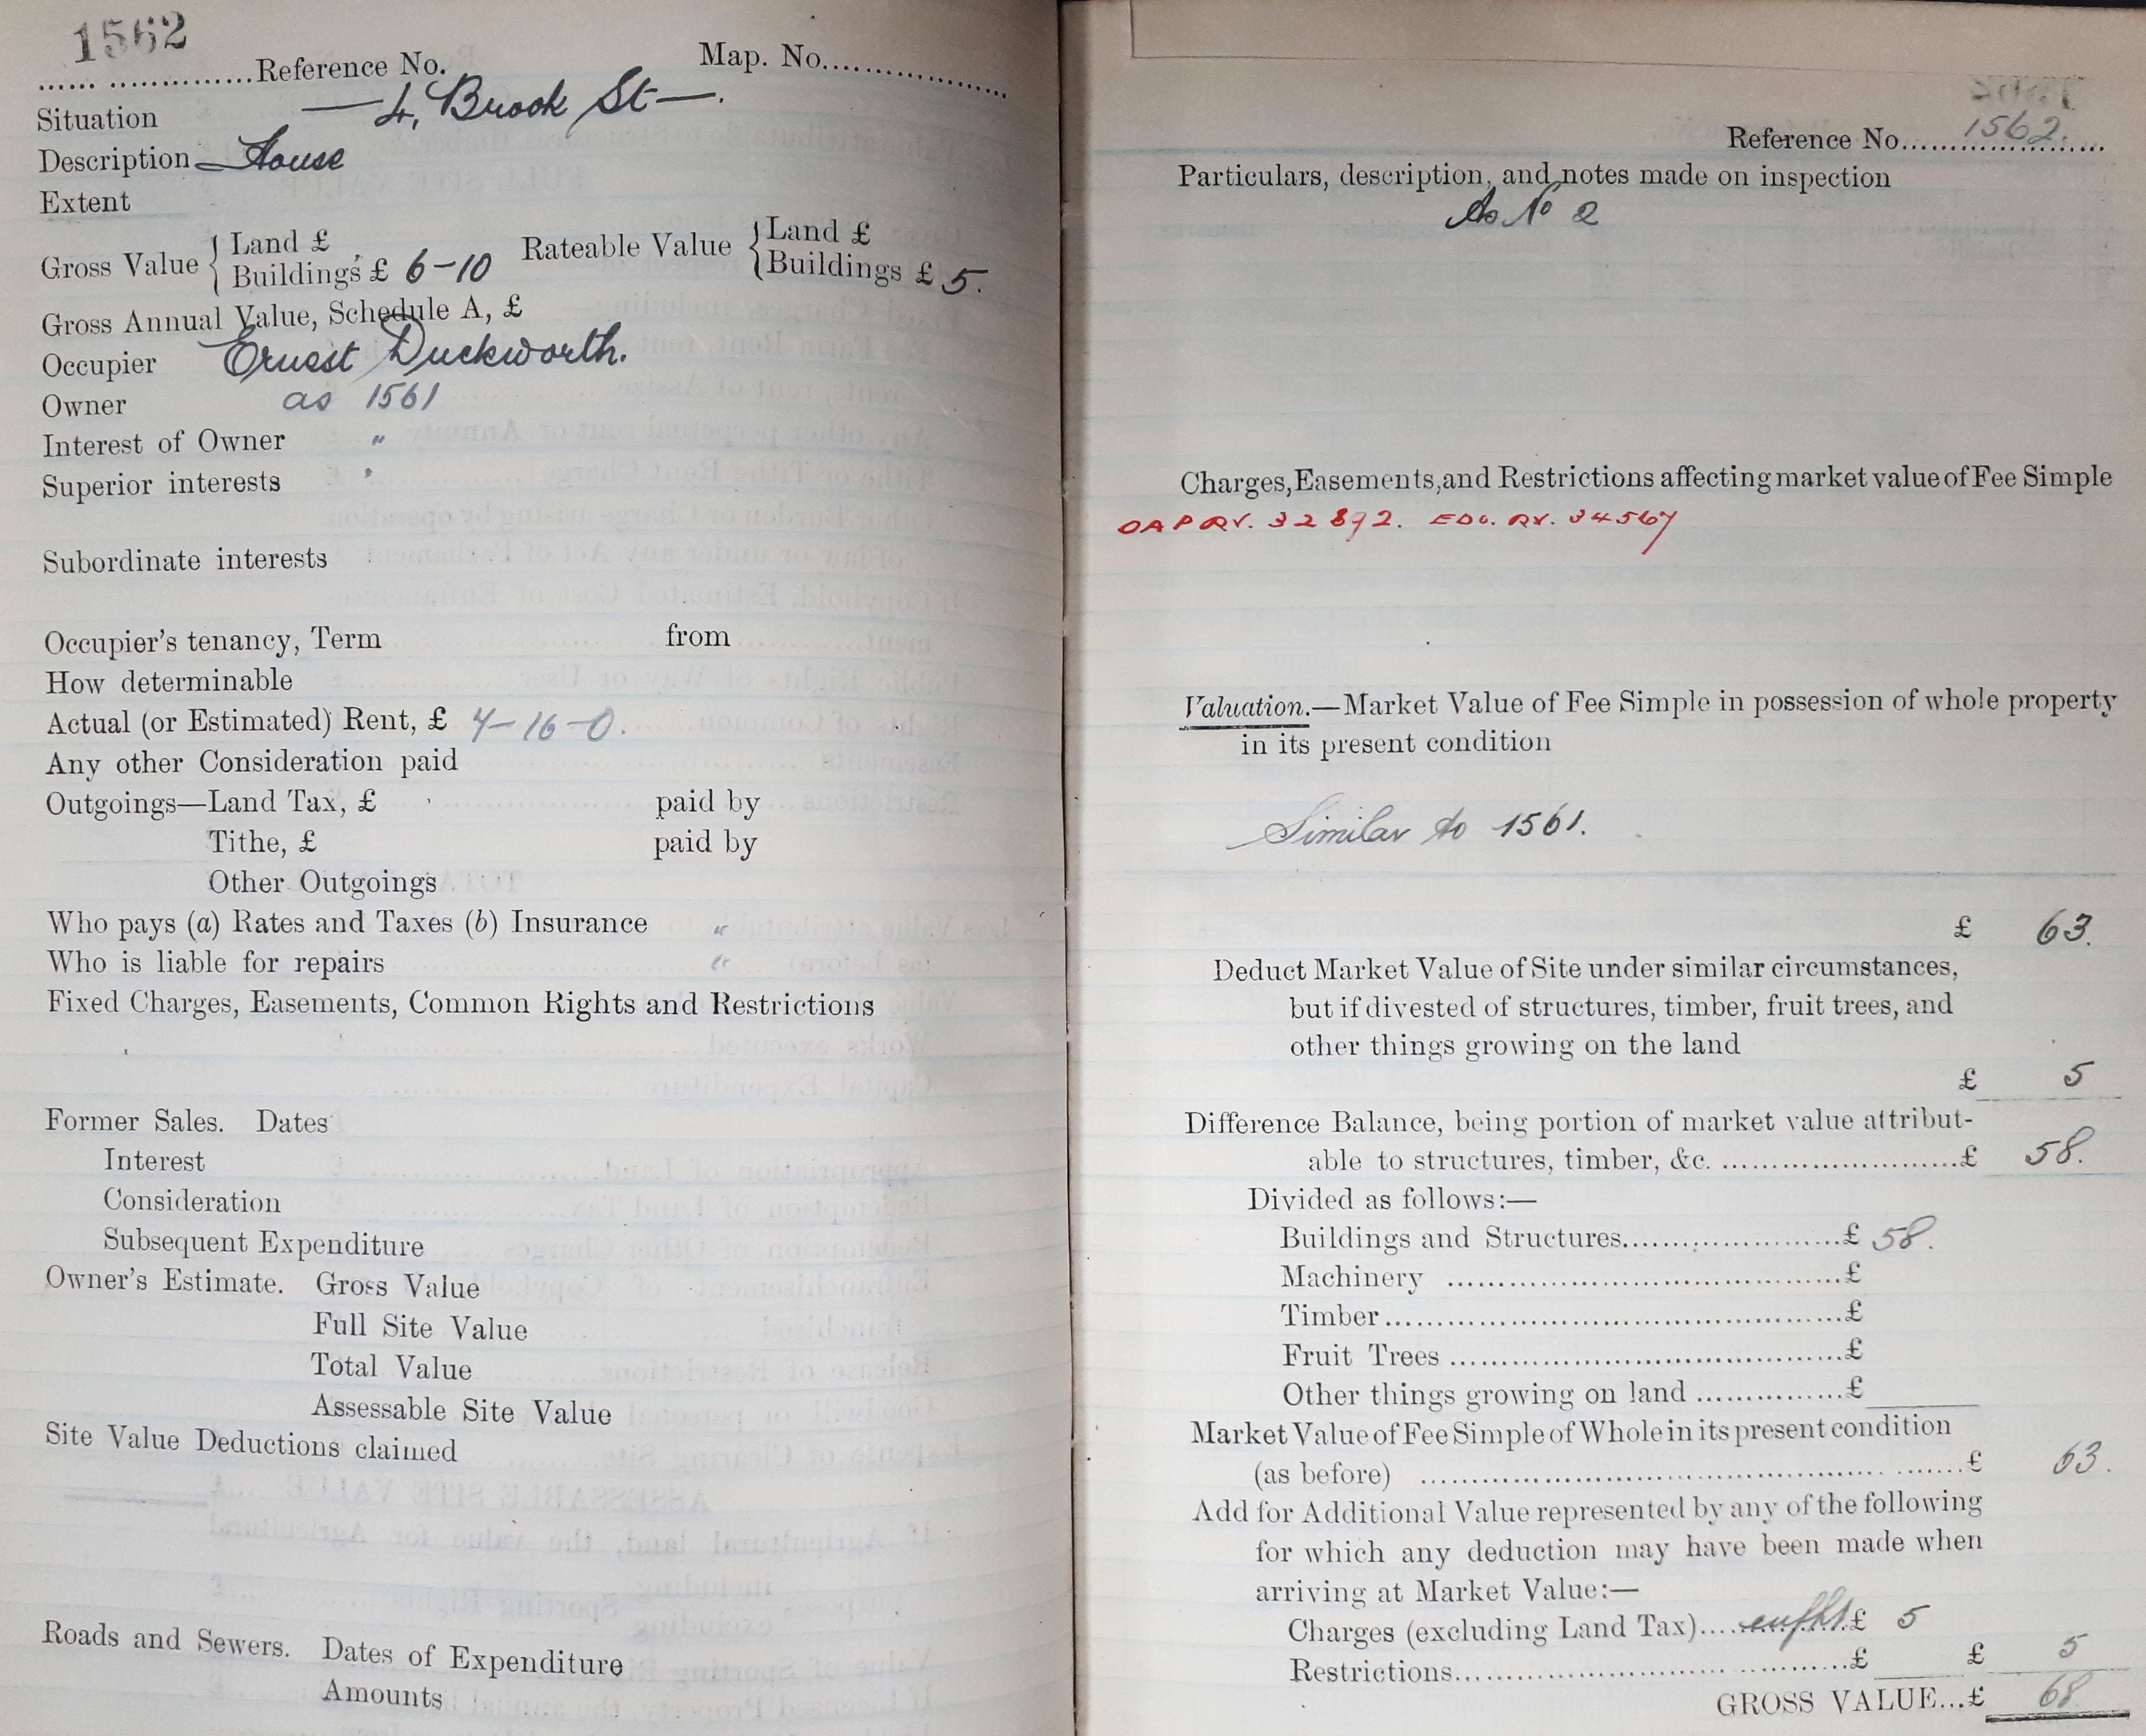 1562
Reference No. Map. No.
Situation — 4, Brook St —.
Description House
Extent
Gross Value { Land £ Rateable Value { Land £
Buildings £ 6-10 Buildings £ 5.
Gross Annual Value, Schedule A, £
Occupier Ernest Duckworth.
Owner as 1561
Interest of Owner "
Superior interests "
Subordinate interests
Occupier's tenancy, Term from
How determinable
Actual (or Estimated) Rent, £ 4-16-0.
Any other Consideration paid
Outgoings—Land Tax, £ paid by
Tithe, £ paid by
Other Outgoings
Who pays (a) Rates and Taxes (b) Insurance "
Who is liable for repairs "
Fixed Charges, Easements, Common Rights and Restrictions
Former Sales. Dates
Interest
Consideration
Subsequent Expenditure
Owner's Estimate. Gross Value
Full Site Value
Total Value
Assessable Site Value
Site Value Deductions claimed
Roads and Sewers. Dates of Expenditure
Amounts
Reference No. 1562.
Particulars, description, and notes made on inspection
As No 2
Charges, Easements, and Restrictions affecting market value of Fee Simple
OAP RV. 32892. EDC. RV. 34567
Valuation.—Market Value of Fee Simple in possession of whole property
in its present condition
Similar to 1561.
£ 63.
Deduct Market Value of Site under similar circumstances,
but if divested of structures, timber, fruit trees, and
other things growing on the land
£ 5
Difference Balance, being portion of market value attribut-
able to structures, timber, &c. £ 58.
Divided as follows:—
Buildings and Structures £ 58.
Machinery £
Timber £
Fruit Trees £
Other things growing on land £
Market Value of Fee Simple of Whole in its present condition
(as before) £ 63.
Add for Additional Value represented by any of the following
for which any deduction may have been made when
arriving at Market Value:—
Charges (excluding Land Tax) £ 5
Restrictions £ £ 5
GROSS VALUE...£ 68